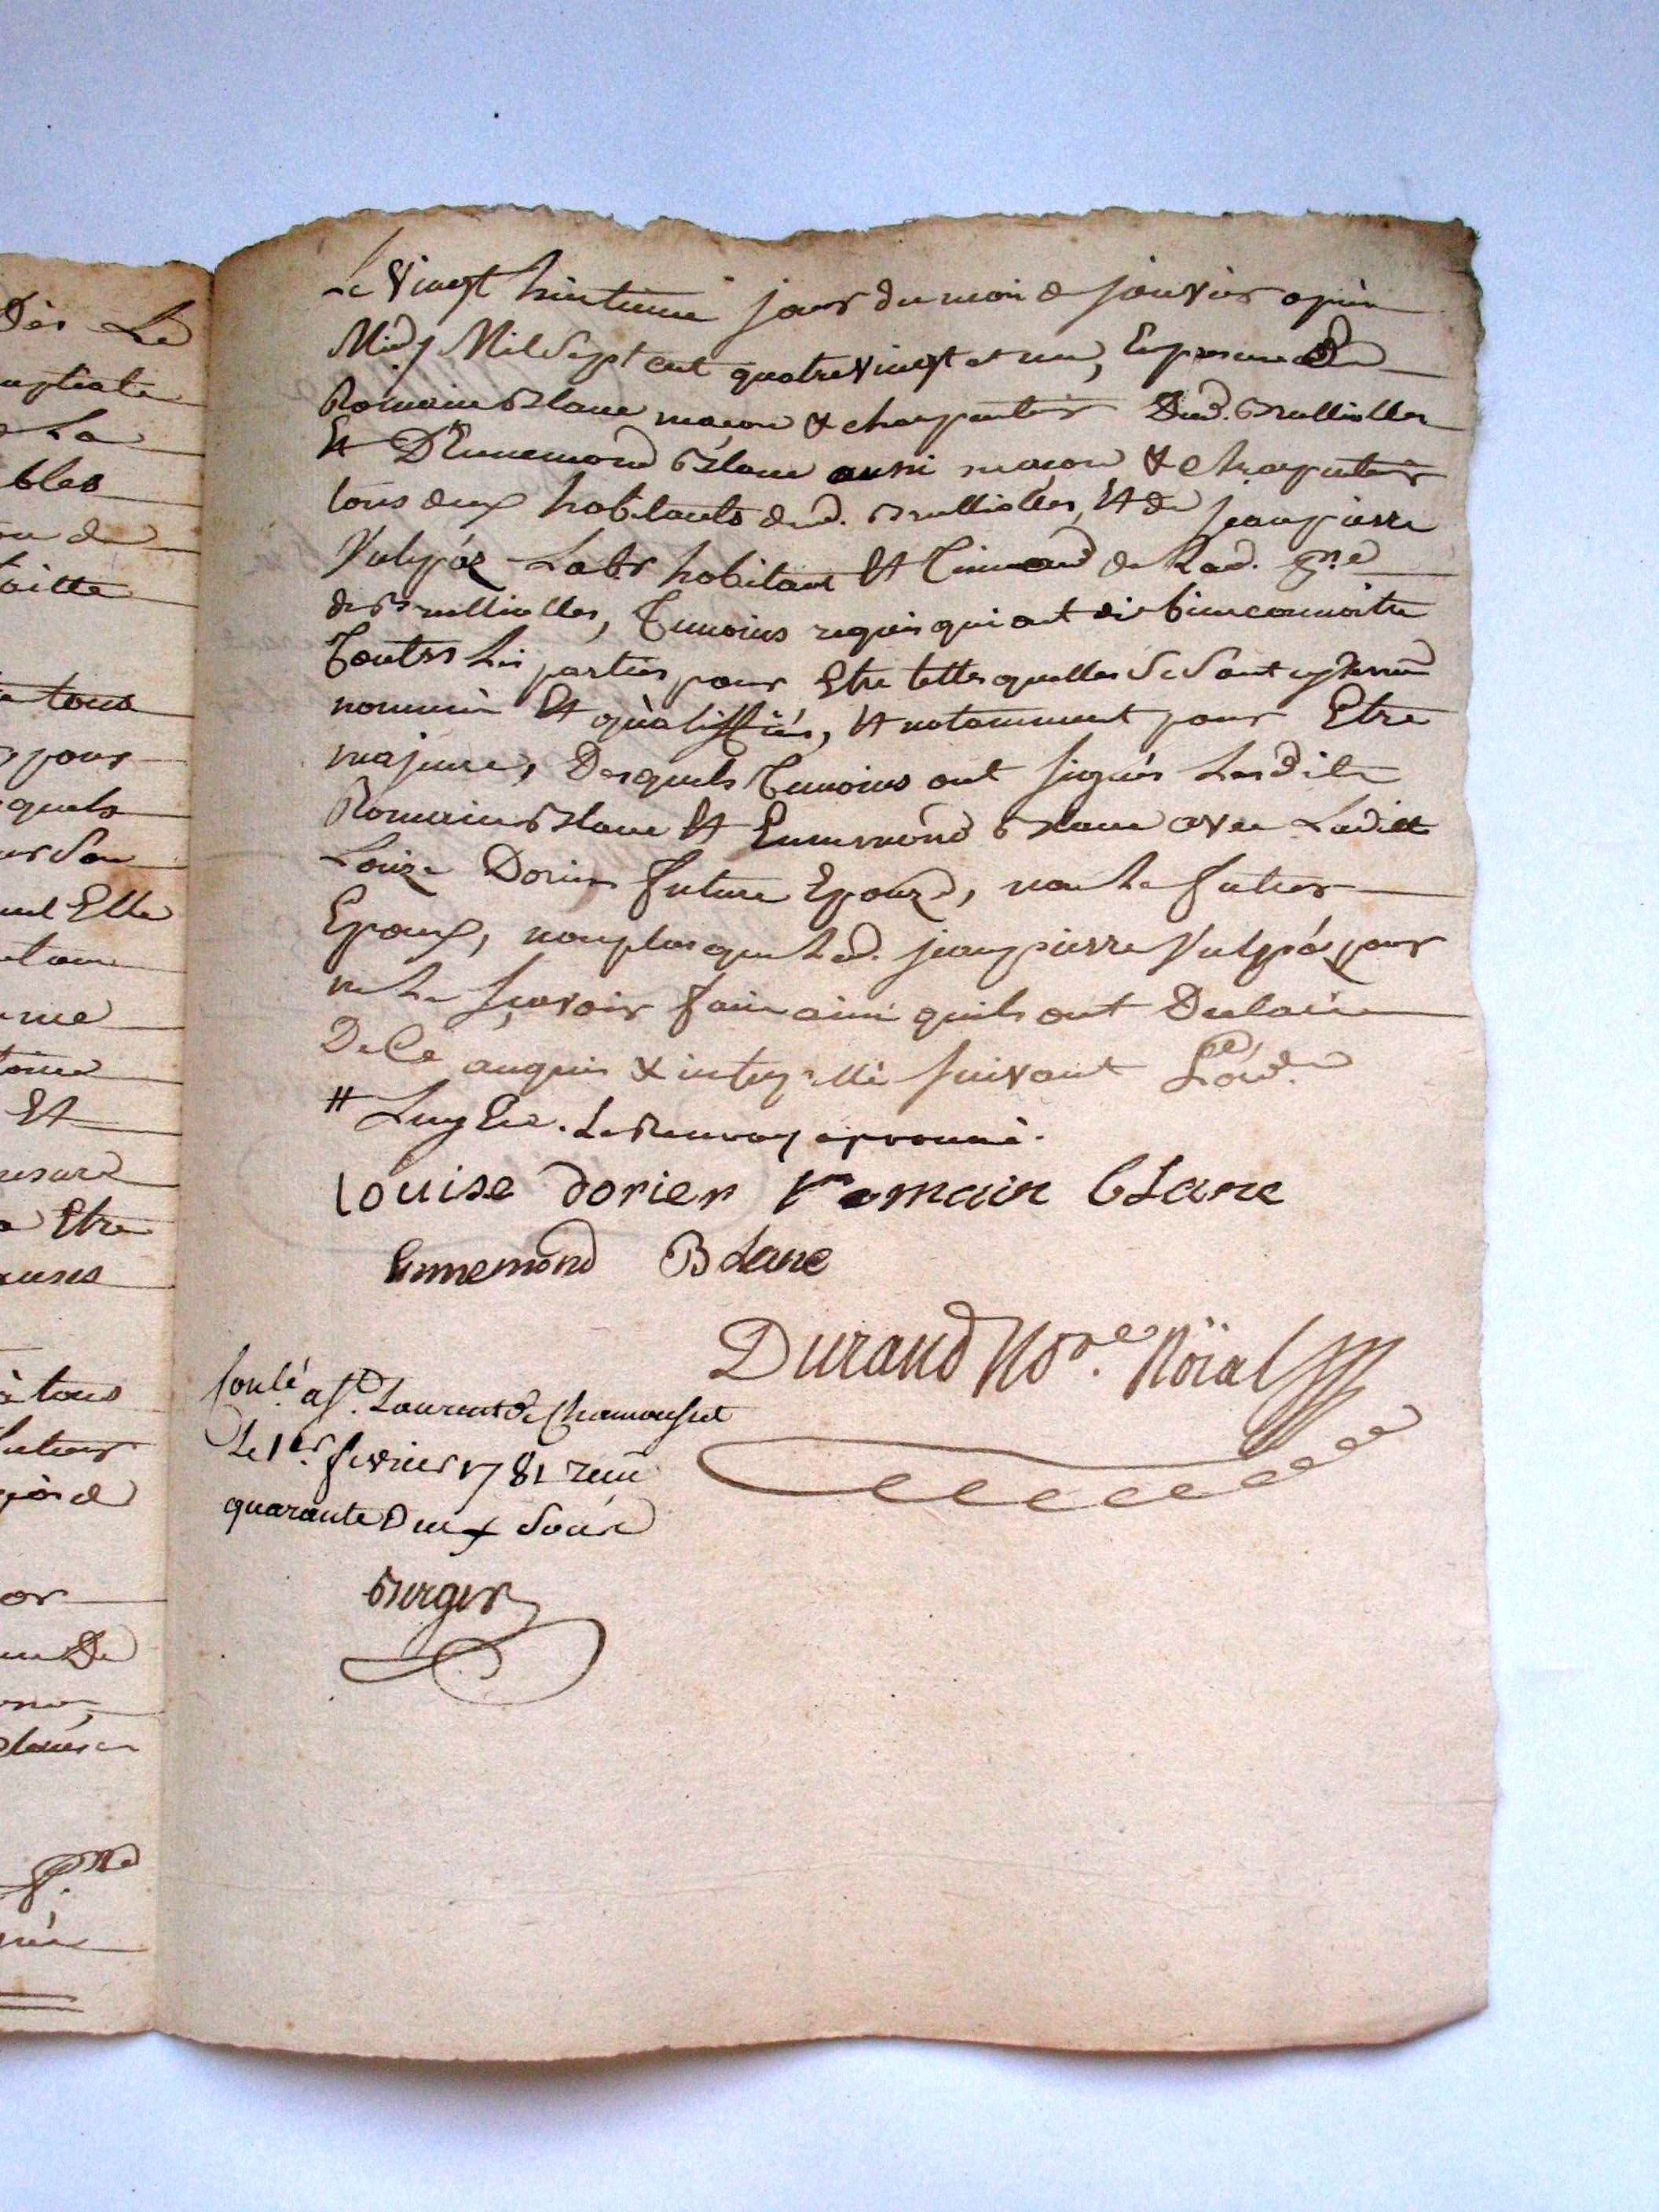 Dès Le
La
bles
de
tous
pour
quels
Elle
Et
Etre
à tous
Le Vingt huitieme jour du mois de janvier apres
Midy Mil Sept cent quatre vingt et un, En presence De
Romain Blanc maçon & charpentier Dud. Brullioles
Et D'Ennemond Blanc aussi maçon & charpentier
tous deux habitants dud. Brullioles, Et de jean pierre
Vulpas Labr habitant Et de Lad. psse
de Brullioles, Temoins requis qui ont dit bien connoitre
Toutes les parties pour Etre telles quelles Se Sont cy devant
nommés Et qualiffiées, Et notamment pour Etre
majeures, Desquels Temoins ont signés Lesdits
Romain Blanc Et Ennemond Blanc avec Laditte
Louize Dorier future Epouze, non Le futur
Epoux, non plus que Led. jean pierre Vulpas pour
ne Le sçavoir faire ainsi quils ont Declarés
De Ce enquis & interpellé suivant L'ord.ce
# Le Renvoy aprouvé.
Louise dorier romain bLanc
Ennemond BLanc
Durand No.re Roïal
Conlé a St. Laurent de Chamousset
Le 1er. fevrier 1781 reçu
quarante Deux Sous
Berger